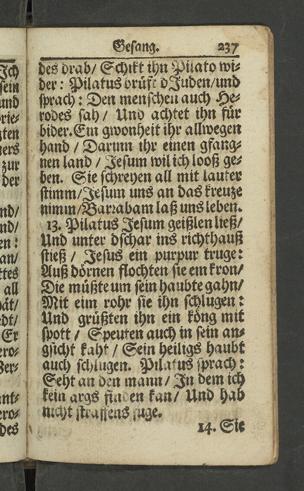 Gesang. 237
des drab/ Schikt ihn Pilato wi-
der: Pilatus brüfft d Juden/und
sprach: Den menschen auch He-
rodes sah/ Und achtet ihn für
bider. Ein gwonheit ihr allwegen
hand/ Darum ihr einen gfang-
nen land/ Jesum wil ich looß ge-
ben. Sie schreyen all mit lauter
stimm/Jesum uns an das kreuze
nimm/Barrabam laß uns leben.
13. Pilatus Jesum geißlen ließ/
Und unter dschar ins richthauß
stieß/ Jesus ein purpur truge:
Auß dörnen flochten sie ein kron/
Die müßte um sein haubte gahn/
Mit eim rohr sie ihn schlugen:
Und grüßten ihn ein köng mit
spott/ Speuten auch in sein an-
gsicht kaht/ Sein heiligs haubt
auch schlugen. Pilatus sprach:
Seht an den mann/ In dem ich
kein args finden kan/ Und hab
nicht straffens fuge.
14. Sie
Ich
sein
und
rie-
ten
ners
zur
der
nd/
nd/
en:
an/
ttes
all
hät/
dt/
Er
ero-
Ber-
ant-
ero-
des